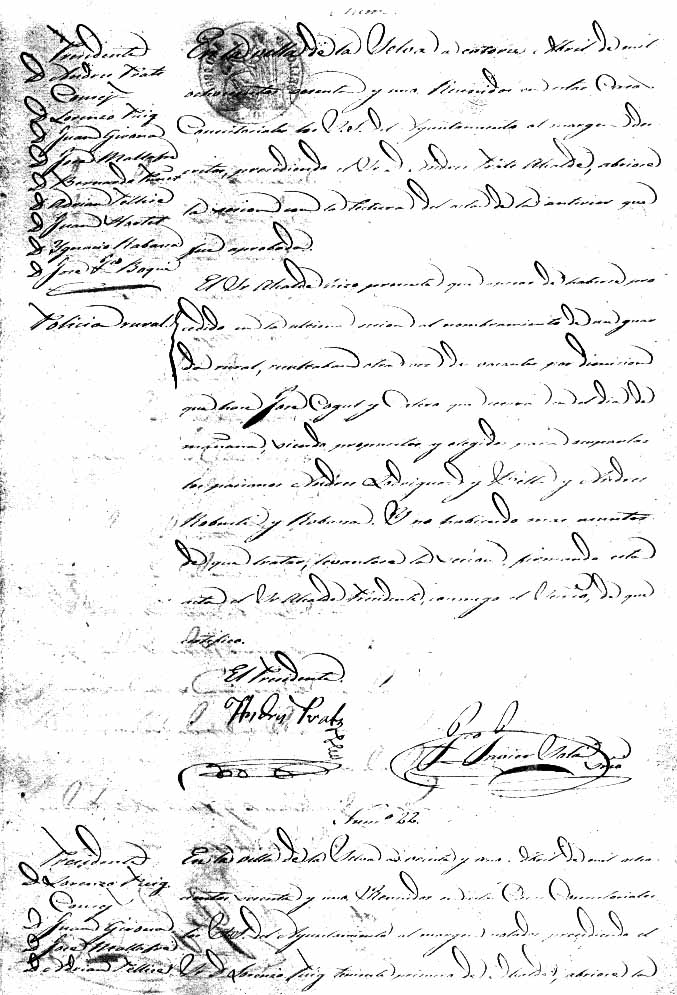 Presidente
Andres Prats
Concej.
Lorenzo Puig
Juan Girona
José Mallafré
Fernando
Adrian Pellicé
Juan
Ygnacio Rabassa
José Fco Baqué
En la villa de la Selva a catorce Abril de mil
ochocientos ochenta y uno. Reunidos en estas Casas
Consistoriales los Sres. del Ayuntamiento al margen des-
critos, presidiendo el Sr. D. Andres Prats Alcalde, abriose
la sesion con la lectura del acta de la anterior que
fué aprobada.
Policia rural.
El Sr. Alcalde hizo presente que a mas de haberse pro-
cedido en la ultima sesion al nombramiento de un guar-
da rural, resultaban otra vez de vacante por dimision
que hace José Cogul y que cesará en el dia de
mañana, siendo propuestos y elegidos para ocuparlas
los paisanos Andres y y Andres
y Rabassa. Y no habiendo mas asuntos
de que tratar, levantose la sesion, firmando esta
acta el Sr. Alcalde Presidente, conmigo el Secrio, de que
certifico.
El Presidente
Andres Prats
Sala
Srio
Num.º 22.
Presidente
D. Lorenzo Puig
Concej.
Juan Girona
José Mallafré
D. Adrian Pellicé
En la villa de la Selva a veinte y uno Abril de mil ocho-
cientos ochenta y uno. Reunidos en estas Casas Consistoriales
los Sres. del Ayuntamiento al margen presidiendo el
Sr. D. Lorenzo Puig teniente primero de Alcalde, abriose la